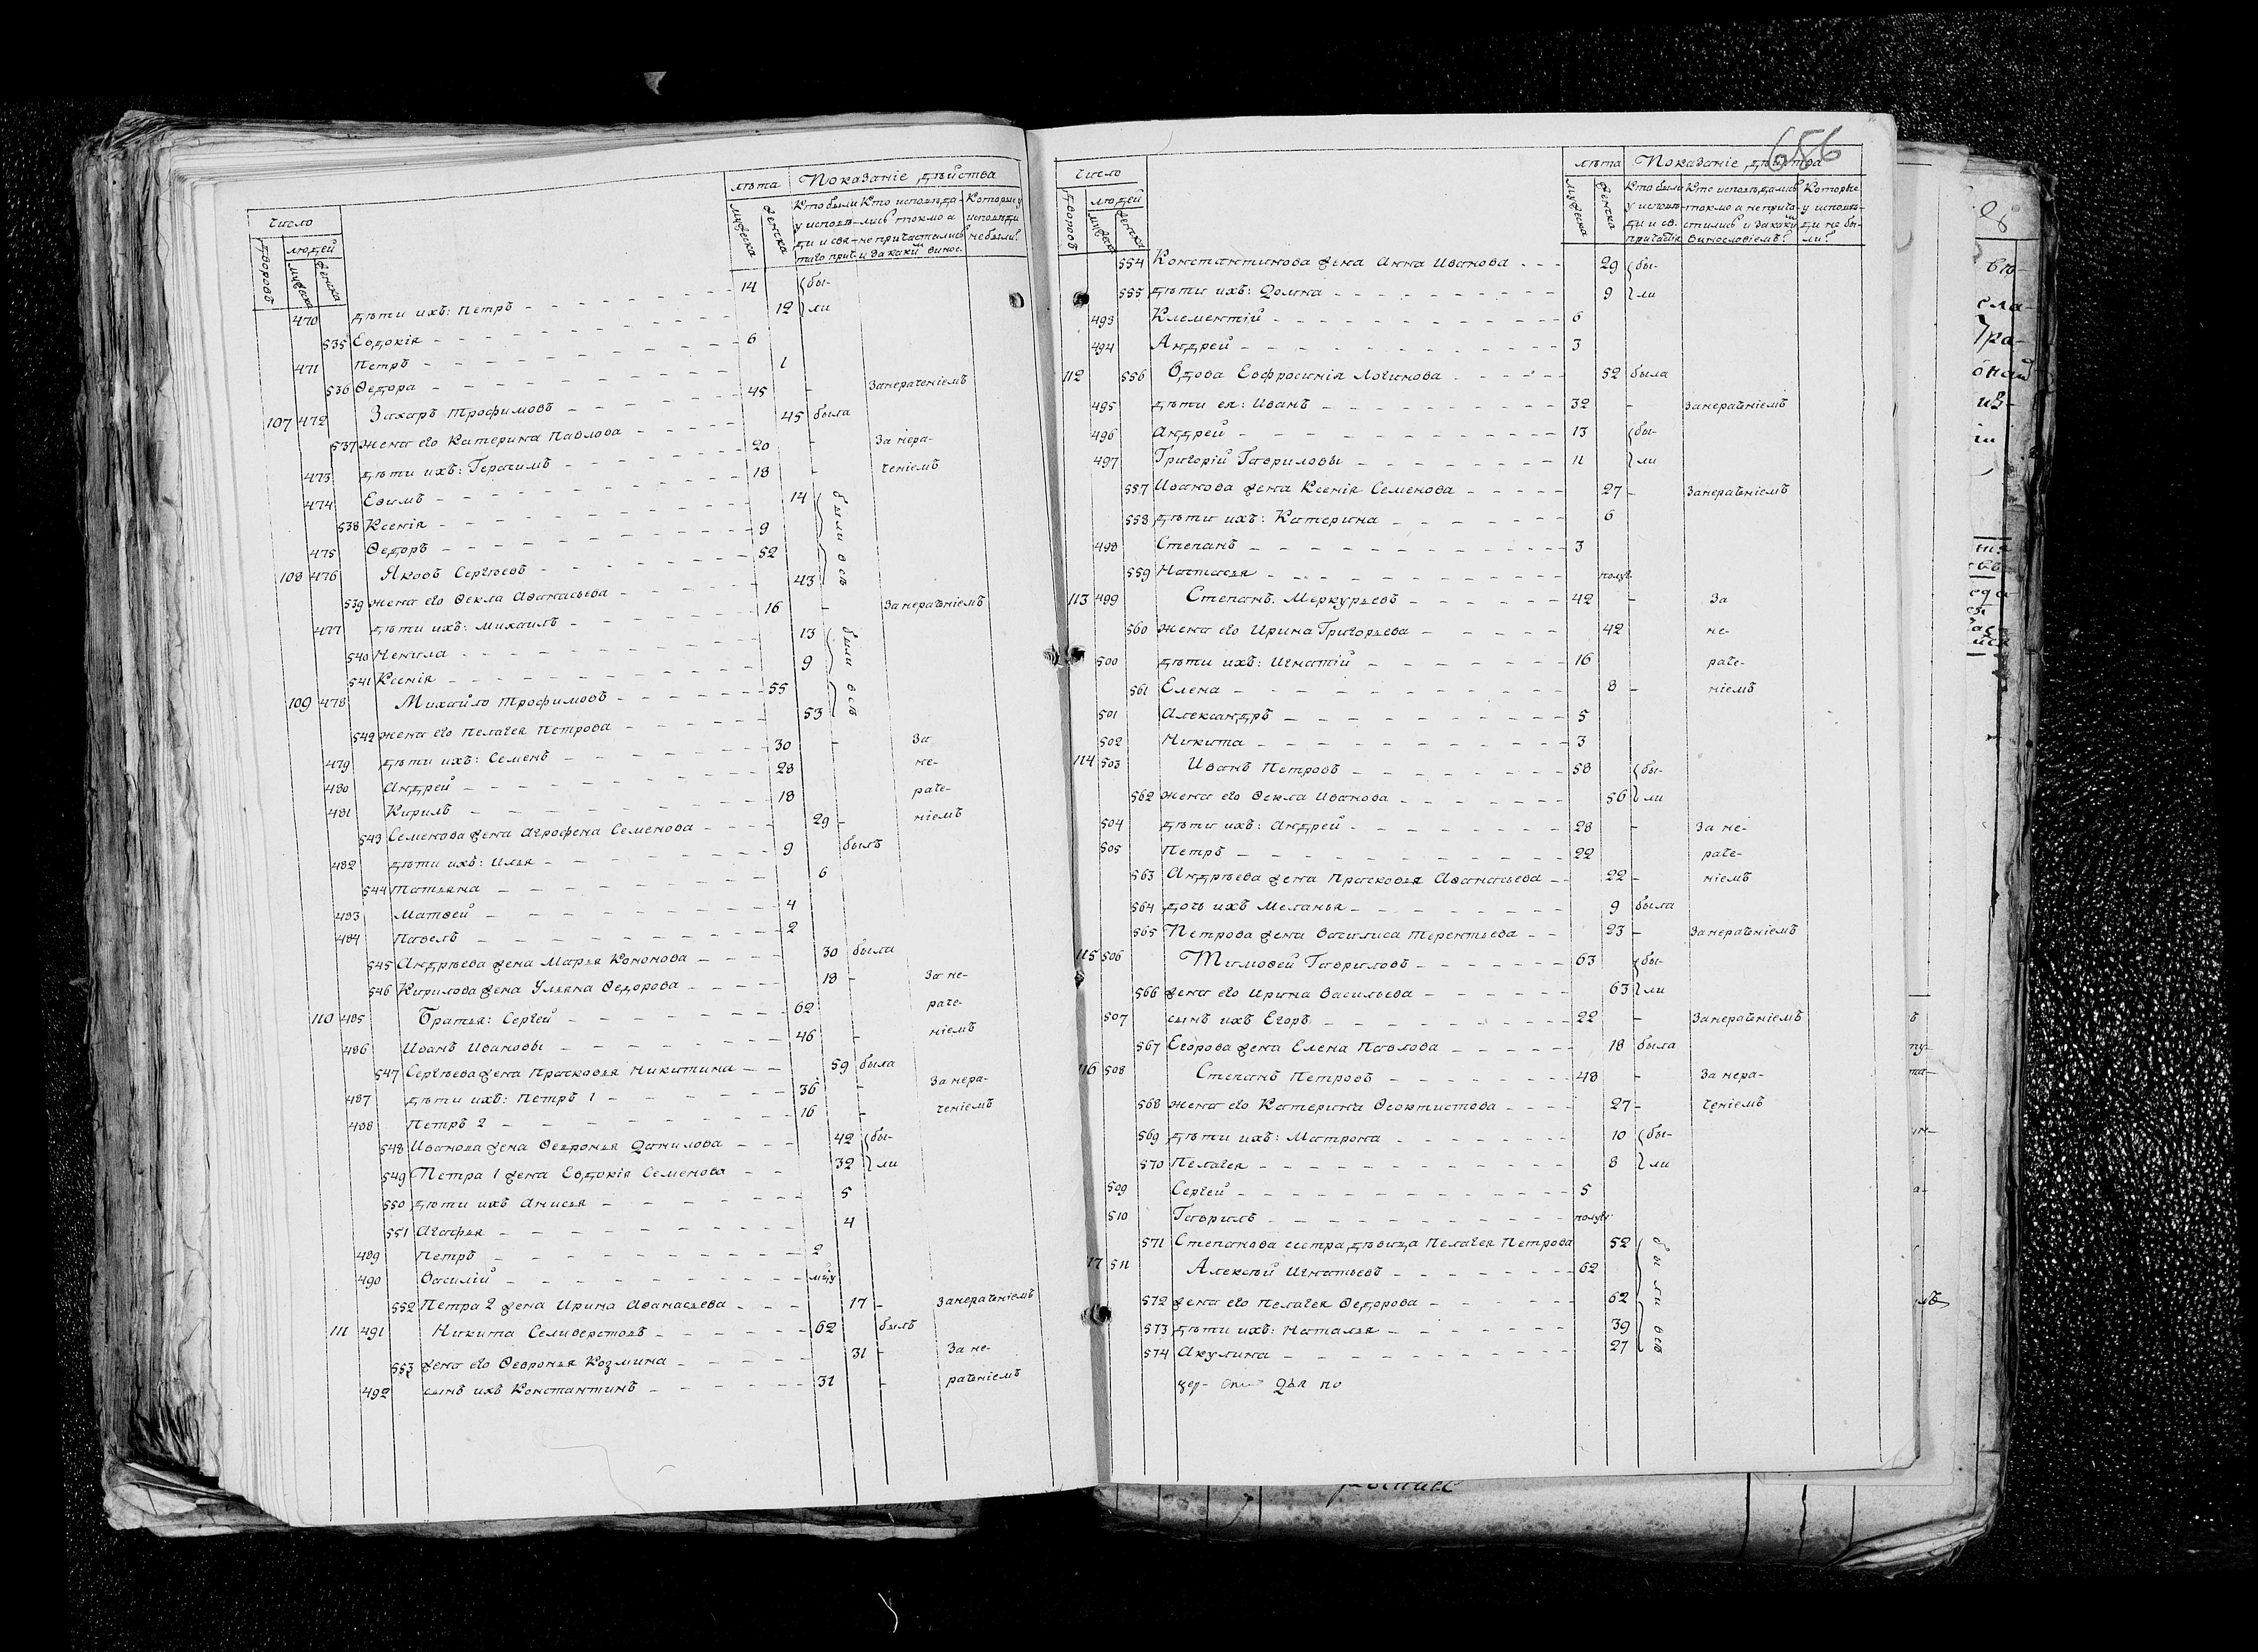 Число
лѣта Показаніе дѣйства
дворовъ людей мужеска женска
мужеска женска Кто были у исповѣди и святаго прич. Кто исповѣдались токмо а не причастились и за какимъ винос. Которые у исповѣди не были?
470 дѣти ихъ: Петръ 14 бы-
535 Евдокія 12 ли
471 Петръ 6
536 Ѳедора 1
107 472 Захаръ Трофимовъ 45 - Занераченіемъ
537 жена его Катерина Павлова 45 была
473 дѣти ихъ: Герасимъ 20 - За нера-
474 Ефимъ 18 - ченіемъ
538 Ксенія 14 были всѣ
475 Ѳедоръ 9
108 476 Яковъ Сергѣевъ 52
539 жена его Ѳекла Аѳанасьева 43
477 дѣти ихъ: Михаилъ 16 - Занераченіемъ
540 Ненила 13 были всѣ
541 Ксенія 9
109 478 Михайло Трофимовъ 55
542 жена его Пелагея Петрова 53
479 дѣти ихъ: Семенъ 30 - За
480 Андрей 28 не-
481 Кирилъ 18 раче-
543 Семенова жена Агрофена Семенова 29 - ніемъ
482 дѣти ихъ: Илья 9 былъ
544 Татьяна 6
483 Матвей 4
484 Павелъ 2
545 Андрѣева жена Марья Кононова 30 была
546 Кирилова жена Ульяна Ѳедорова 18 - За не-
110 485 Братья: Сергей 62 раче-
486 Иванъ Ивановы 46 - ніемъ
547 Сергѣева жена Прасковья Никитина 59 была
487 дѣти ихъ: Петръ 1 36 - За нера-
488 Петръ 2 16 - ченіемъ
548 Иванова жена Ѳевронья Данилова 42 бы-
549 Петра 1 жена Евдокія Семенова 32 ли
550 дѣти ихъ Анисья 5
551 Агафья 4
489 Петръ 2
490 Василій
552 Петра 2 жена Ирина Аѳанасьева 17 - Занераченіемъ
111 491 Никита Селиверстовъ 62 былъ
553 жена его Ѳевронья Козмина 31 - За не-
492 сынъ ихъ Константинъ 31 - раченіемъ
656
Число
лѣта Показаніе дѣйства
дворовъ людей мужеска женска
мужеска женска Кто были у исповѣди и св. причастія Кто исповѣдались токмо а не причастились и закакимъ винословіемъ? Которые у исповѣди не были?
554 Константинова жена Анна Иванова 29 бы-
555 дѣти ихъ: Домна 9 ли
493 Клементій 6
494 Андрей 3
112 556 Вдова Евфросинія Логинова 52 была
495 дѣти ея: Иванъ 32 - Занераченіемъ
496 Андрей 13 бы-
497 Григорій Гавриловы 11 ли
557 Иванова жена Ксенія Семенова 27 - Занераченіемъ
558 дѣти ихъ: Катерина 6
498 Степанъ 3
559 Настасья полуг.
113 499 Степанъ Меркурьевъ 42 - За
560 жена его Ирина Григорьева 42 не-
500 дѣти ихъ: Игнатій 16 раче-
561 Елена 8 - ніемъ
501 Александръ 5
502 Никита 3
114 503 Иванъ Петровъ 58 бы-
562 жена его Ѳекла Иванова 56 ли
504 дѣти ихъ: Андрей 28 - За не-
505 Петръ 22 раче-
563 Андрѣева жена Прасковья Аѳанасьева 22 - ніемъ
564 дочь ихъ Меланья 9 была
565 Петрова жена Василиса Терентьева 23 - Занераченіемъ
115 506 Тимофей Гавриловъ 63 бы-
566 жена его Ирина Васильева 63 ли
507 сынъ ихъ Егоръ 22 - Занераченіемъ
567 Егорова жена Елена Павлова 18 была
116 508 Степанъ Петровъ 48 - За нера-
568 жена его Катерина Ѳеоктистова 27 - ченіемъ
569 дѣти ихъ: Матрона 10 бы-
570 Пелагея 8 ли
509 Сергей 5
510 Гаврилъ полуг.
571 Степанова сестра дѣвица Пелагея Петрова 52 были всѣ
17 511 Алексѣй Игнатьевъ 62
572 жена его Пелагея Ѳедорова 62
573 дѣти ихъ: Наталья 39
574 Акулина 27